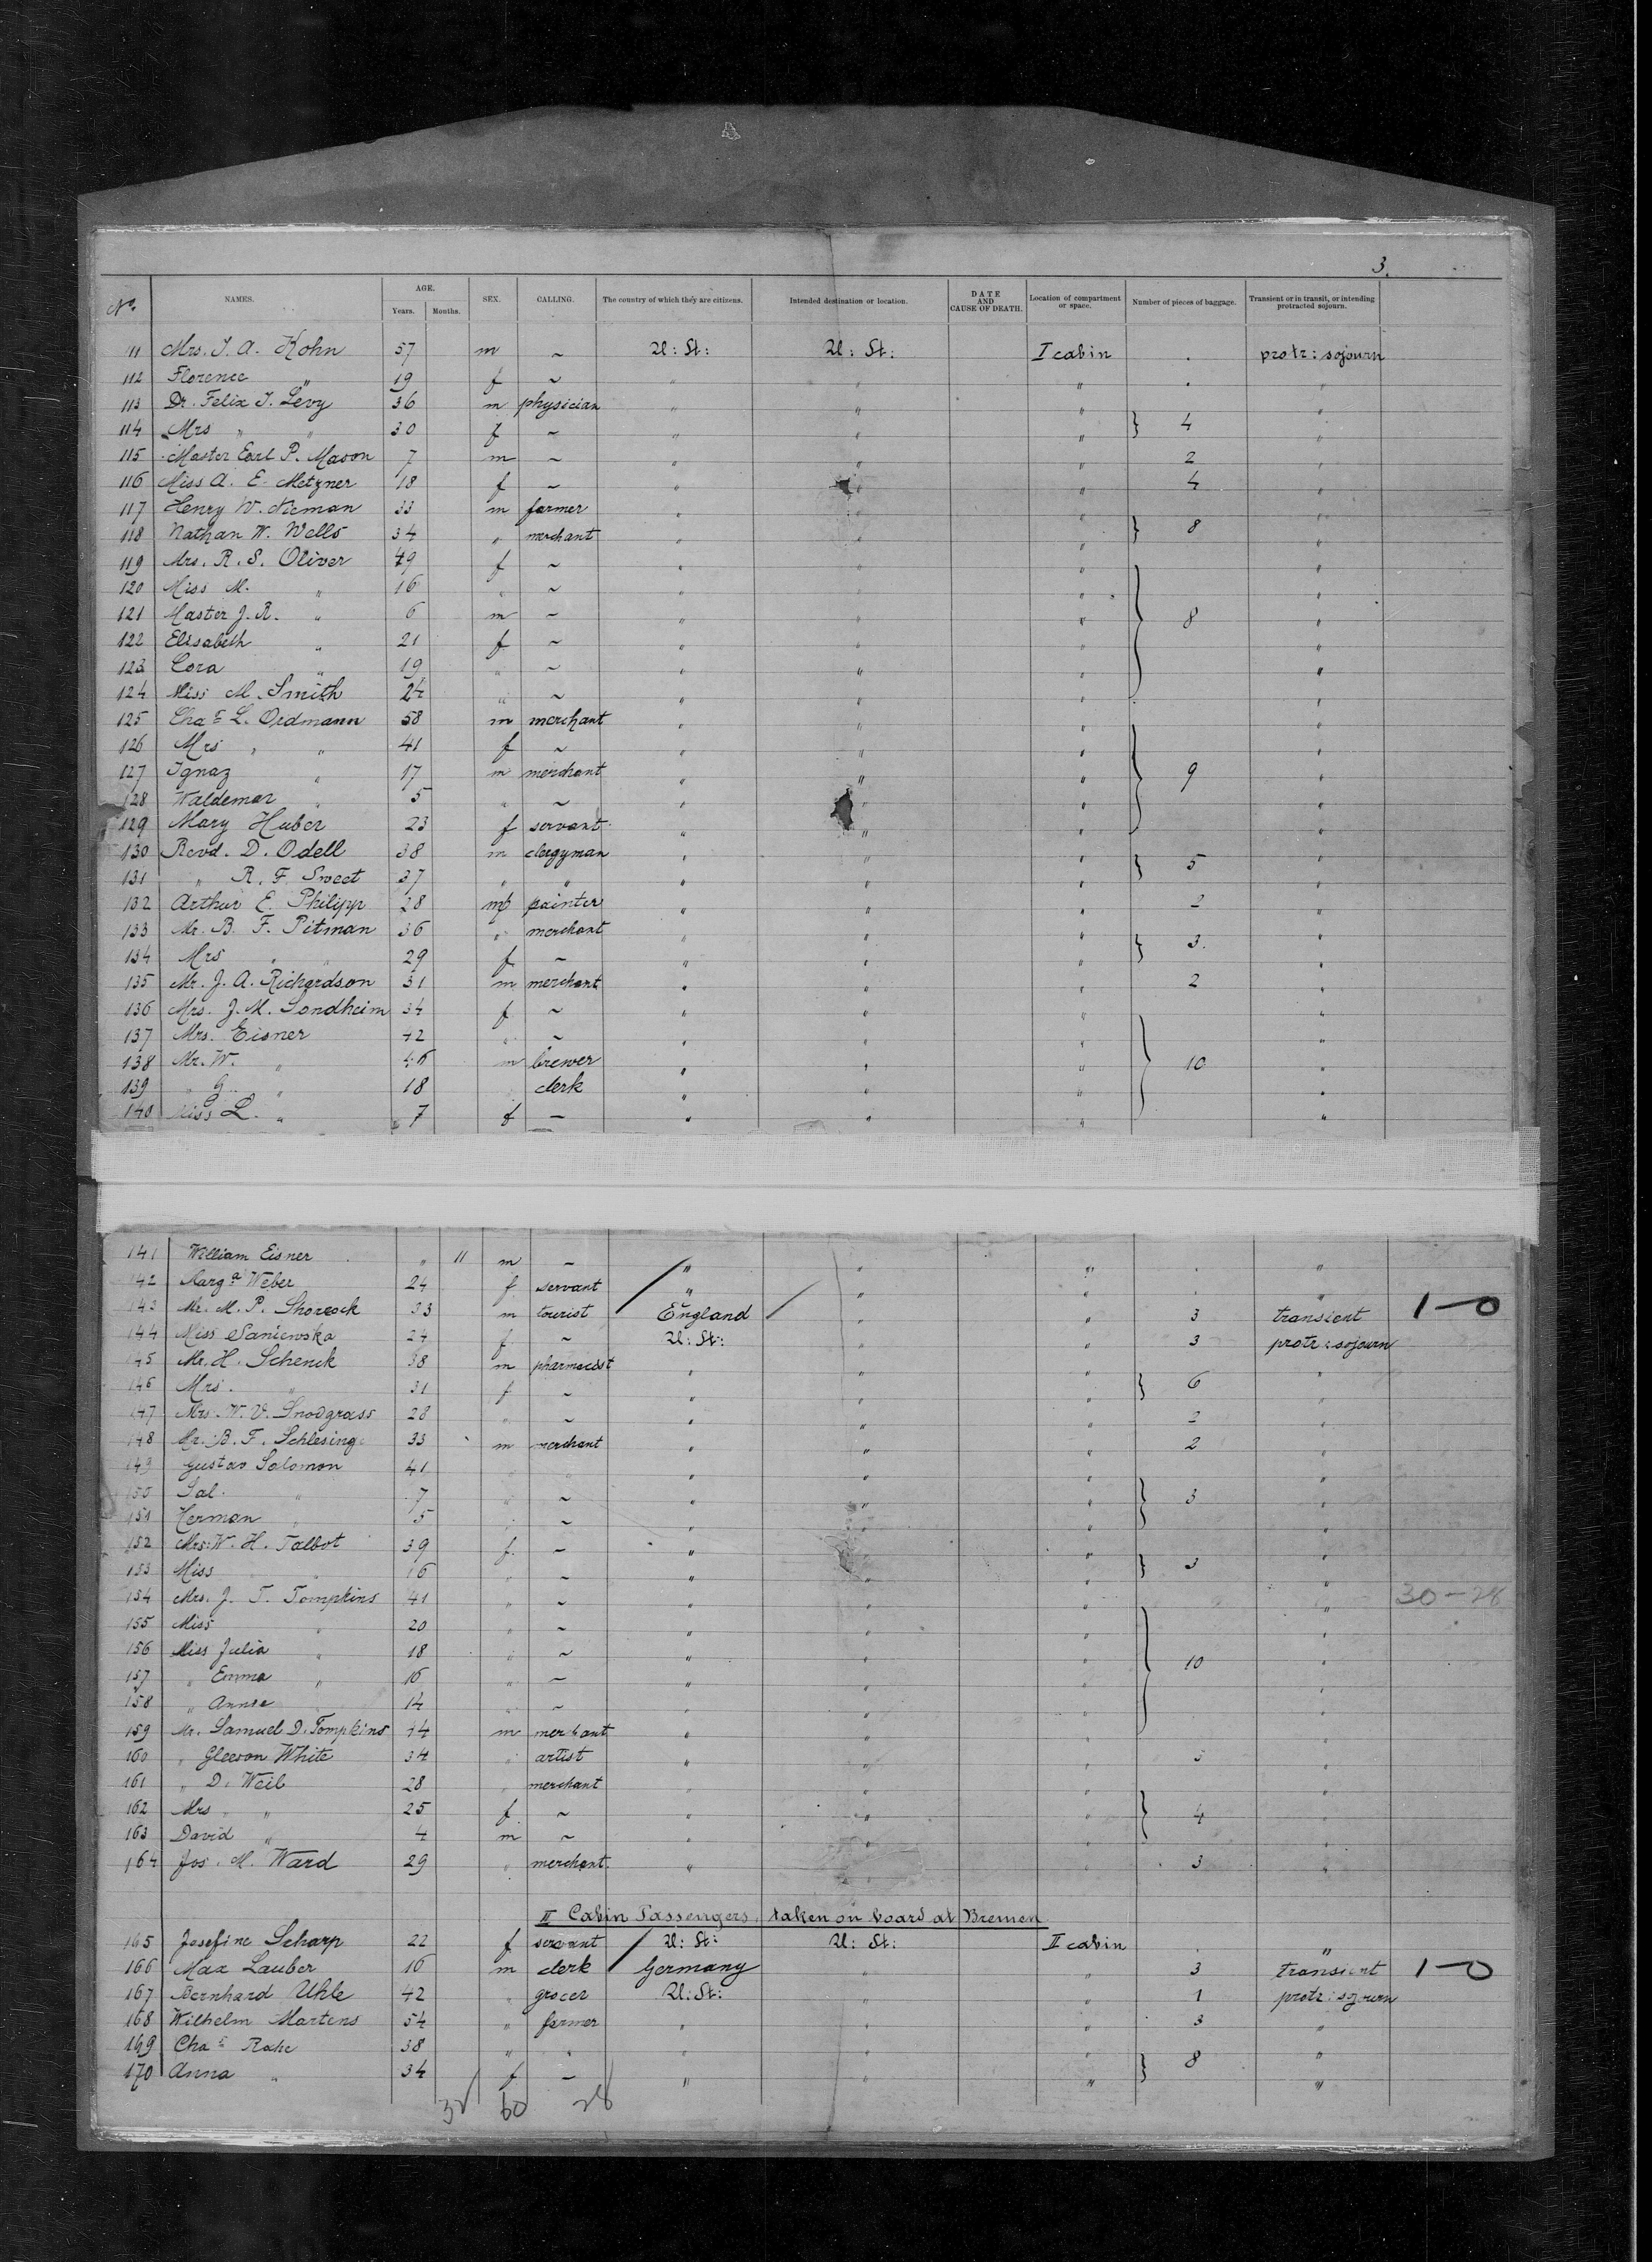 3.
No. NAMES. AGE. Years. Months. SEX. CALLING. The country of which they are citizens. Intended destination or location. DATE AND CAUSE OF DEATH. Location of compartment or space. Number of pieces of baggage. Transient or in transit, or intending protracted sojourn.
111 Mrs. J. A. Kohn 57 m ~ U: St: U: St: I cabin . protr: sojourn
112 Florence " 19 f ~ " " " . "
113 Dr. Felix J. Levy 36 m physician " " " "
114 Mrs " " 30 f ~ " " " } 4 "
115 Master Earl P. Mason 7 m ~ " " " 2 "
116 Miss A. E. Metzner 18 f ~ " " " 4 "
117 Henry W. Nieman 33 m farmer " " " "
118 Nathan W. Wells 34 " merchant " " " } 8 "
119 Mrs. R. S. Oliver 49 f ~ " " " "
120 Miss M. " 16 " ~ " " " "
121 Master J. R. " 6 m ~ " " " } 8 "
122 Elisabeth " 21 f ~ " " " "
123 Cora " 19 " ~ " " " "
124 Miss M. Smith 24 " ~ " " " "
125 Chas L. Oedmann 58 m merchant " " " "
126 Mrs " " 41 f ~ " " " "
127 Ignaz " 17 m merchant " " " } 9 "
128 Waldemar " 5 " ~ " " " "
129 Mary Huber 23 f servant " " " "
130 Revd. D. Odell 38 m clergyman " " " } 5 "
131 " R. F. Sweet 37 " " " " " "
132 Arthur E. Philipp 28 m painter " " " 2 "
133 Mr. B. F. Pitman 36 " merchant " " " } 3. "
134 Mrs " " 29 f ~ " " " "
135 Mr. J. A. Richardson 31 m merchant " " " 2 "
136 Mrs. J. M. Sondheim 34 f ~ " " " "
137 Mrs. Eisner 42 " ~ " " " "
138 Mr. W. " 46 m brewer " " " } 10 "
139 " G. " 18 " clerk " " " "
140 Miss L. " 7 f ~ " " " "
141 William Eisner " 11 m ~ " " " . "
142 Marga Weber 24 f servant " " " . "
143 Mr. M. P. Shorrock 33 m tourist England " " 3 transient 1-0
144 Miss Saniewska 24 f ~ U: St: " " 3 protr: sojourn
145 Mr. H. Schenck 38 m pharmacist " " " "
146 Mrs. " 31 f ~ " " " } 6 "
147 Mrs. W. V. Snodgrass 28 " ~ " " " 2 "
148 Mr. B. F. Schlesing 33 m merchant " " " 2 "
149 Gustav Salomon 41 " " " " " "
150 Sal. " 7 " ~ " " " } 3 "
151 Herman " 5 " ~ " " " "
152 Mrs. W. H. Talbot 39 f. ~ " " " "
153 Miss " 16 " ~ " " " } 3 "
154 Mrs. J. T. Tompkins 41 " ~ " " " " 30-28
155 Miss " 20 " ~ " " " "
156 Miss Julia " 18 " ~ " " " } 10 "
157 " Emma " 16 " ~ " " " "
158 " Annie 14 " ~ " " " "
159 Mr. Samuel D. Tompkins 44 m merchant " " " "
160 " Gleeson White 34 " artist " " " 3 "
161 " D. Weil 28 " merchant " " " "
162 Mrs " " 25 f ~ " " " } 4 "
163 David " 4 m ~ " " " "
164 Jos. M. Ward 29 " merchant " " " 3 "
II Cabin Passengers, taken on board at Bremen
165 Josefine Scharp 22 f servant U: St: U: St: II cabin . "
166 Max Lauber 16 m clerk Germany " " 3 transient 1-0
167 Bernhard Uhle 42 " grocer U: St: " " 1 protr: sojourn
168 Wilhelm Martens 54 " farmer " " " 3 "
169 Chas Rahe 38 " " " " " "
170 Anna " 34 f ~ " " " } 8 "
32 60 28